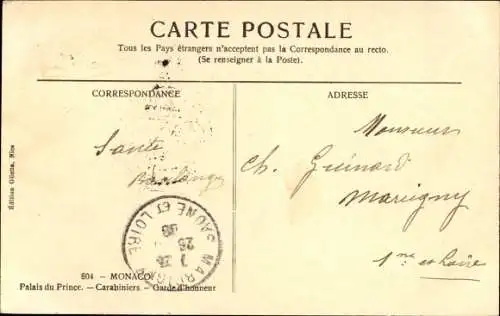 CARTE POSTALE
Tous les Pays étrangers n'acceptent pas la Correspondance au recto.
(Se renseigner à la Poste).
CORRESPONDANCE
ADRESSE
Édition Giletta, Nice
Santé
Monsieur
Ch. Guinard
Marigny
Sne et Loire
MARIGNY
SAONE ET LOIRE
604 - MONACO
Palais du Prince. - Carabiniers - Garde d'honneur